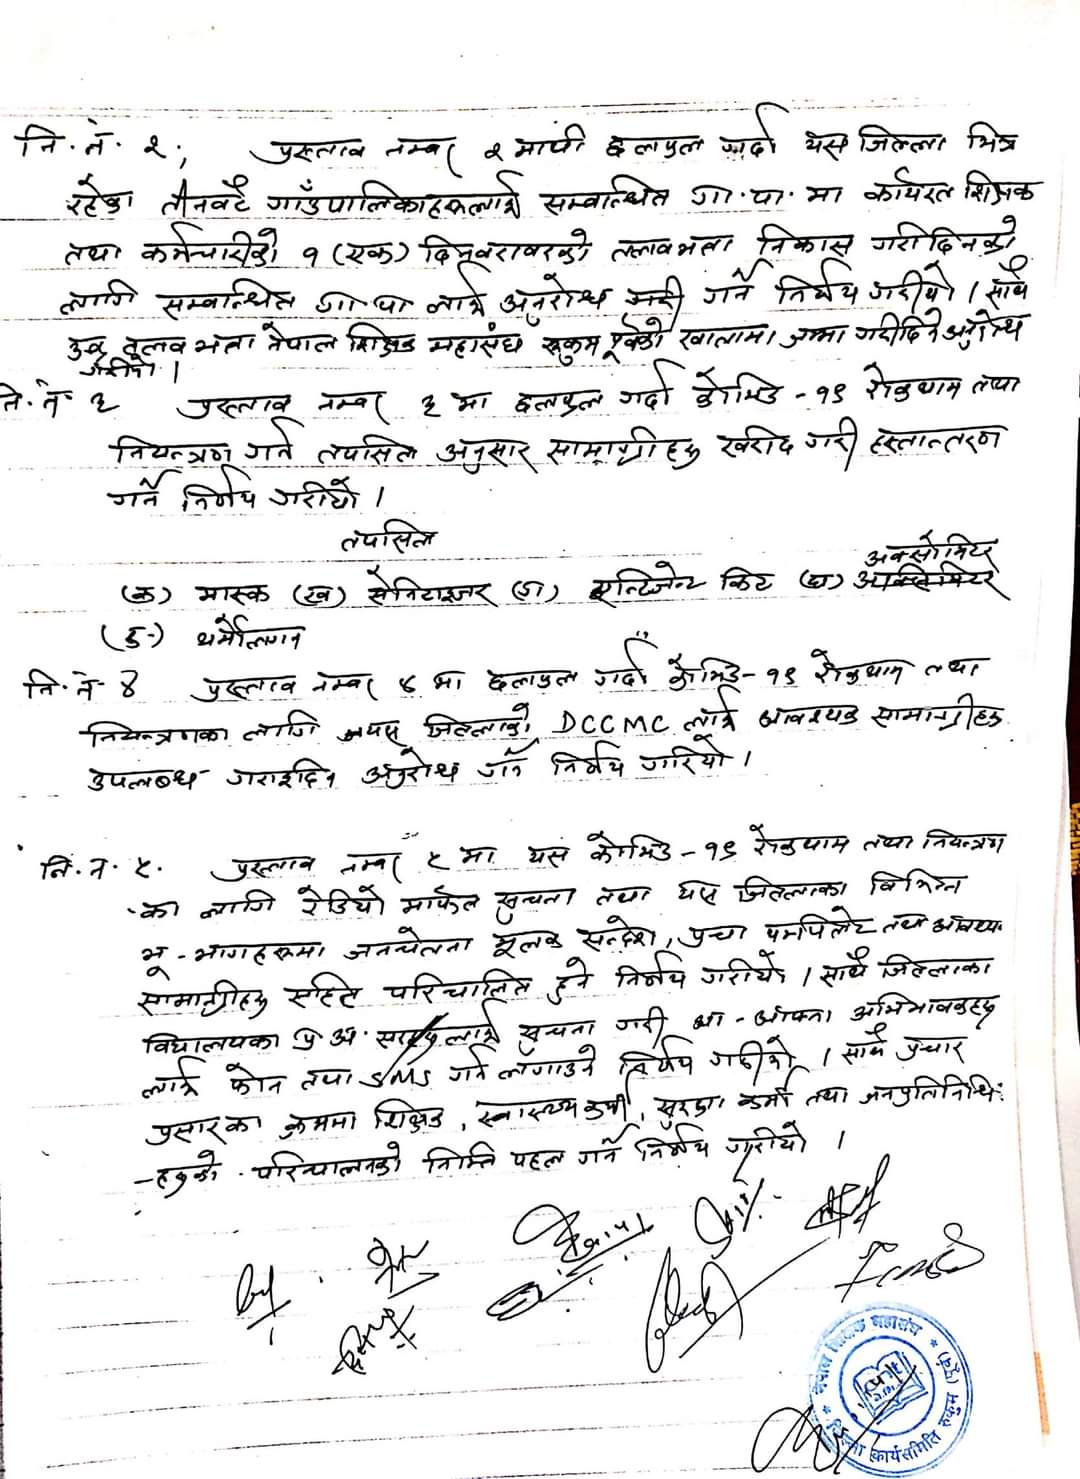 नि.नं. २, प्रस्ताव नम्बर २ माथी छलफल गर्दा यस जिल्ला भित्र
रहेका तीनवटै गाँउपालिकाहरुलाई सम्वान्धित गा.पा. मा कार्यरत शिक्षक
तथा कर्मचारीको १ (एक) दिन बरावरको तलव भत्ता निकास गरीदिनको
लागि सम्वान्धित गा पा लाई अनुरोध गर्ने निर्णय गरीयो । साथै
उक्त तलव भत्ता नेपाल शिक्षक महासंघ रुकुम पूर्वको खातामा जम्मा गरीदिन अनुरोध
गरीयो ।
नि.नं ३ प्रस्ताव नम्बर ३ मा छलफल गर्दा कोभिड - १९ रोकथाम तथा
नियन्त्रण गर्न तपसिल अनुसार सामाग्रीहरु खरीद गरी हस्तान्तरण
गर्ने निर्णय गरीयो ।
तपसिल
अक्सोमिटर
(क) मास्क (ख) सेनिटाइजर (ग) एन्टिजेन्ट किट (घ)
(ङ) थर्मोलगन
नि.नं- ४ प्रस्ताव नम्बर ४ मा छलफल गर्दा कोभिड - १९ रोकथाम तथा
नियन्त्रणका लागि यस जिल्लाको DCCMC लाई आवश्यक सामाग्रीहरु
उपलब्ध गराइदिन अनुरोध गर्ने निर्णय गरियो ।
नि.नं. ५. प्रस्ताव नम्बर ५ मा यस कोभिड - १९ रोकथाम तथा नियन्त्रण
का लागि रेडियो मार्फत सुचना तथा यस जिल्लाका विभिन्न
भू - भागहरुमा जनचेतना मूलक सन्देश, प्रचा पम्पिलेट तथा आवश्य
सामाग्रीहरु सहित परिचालित हुने निर्णय गरीयो । साथै जिल्लाका
विद्यालयका प्र.अ. लाई सुचना गरी आ - आफ्ना अभिभावकहरु
लाई फोन तथा SMS गर्न लगाउने निर्णय गरीयो । साथै प्रचार
प्रसारका क्रममा शिक्षक, स्वास्थ्यकर्मी, सुरक्षा कर्मी तथा जनप्रतिनिधि
- हरुको परिचालनको निम्ति पहल गर्ने निर्णय गरीयो ।
नेपाल शिक्षक महासंघ
जिल्ला कार्यसमिति रुकुम (पूर्व)